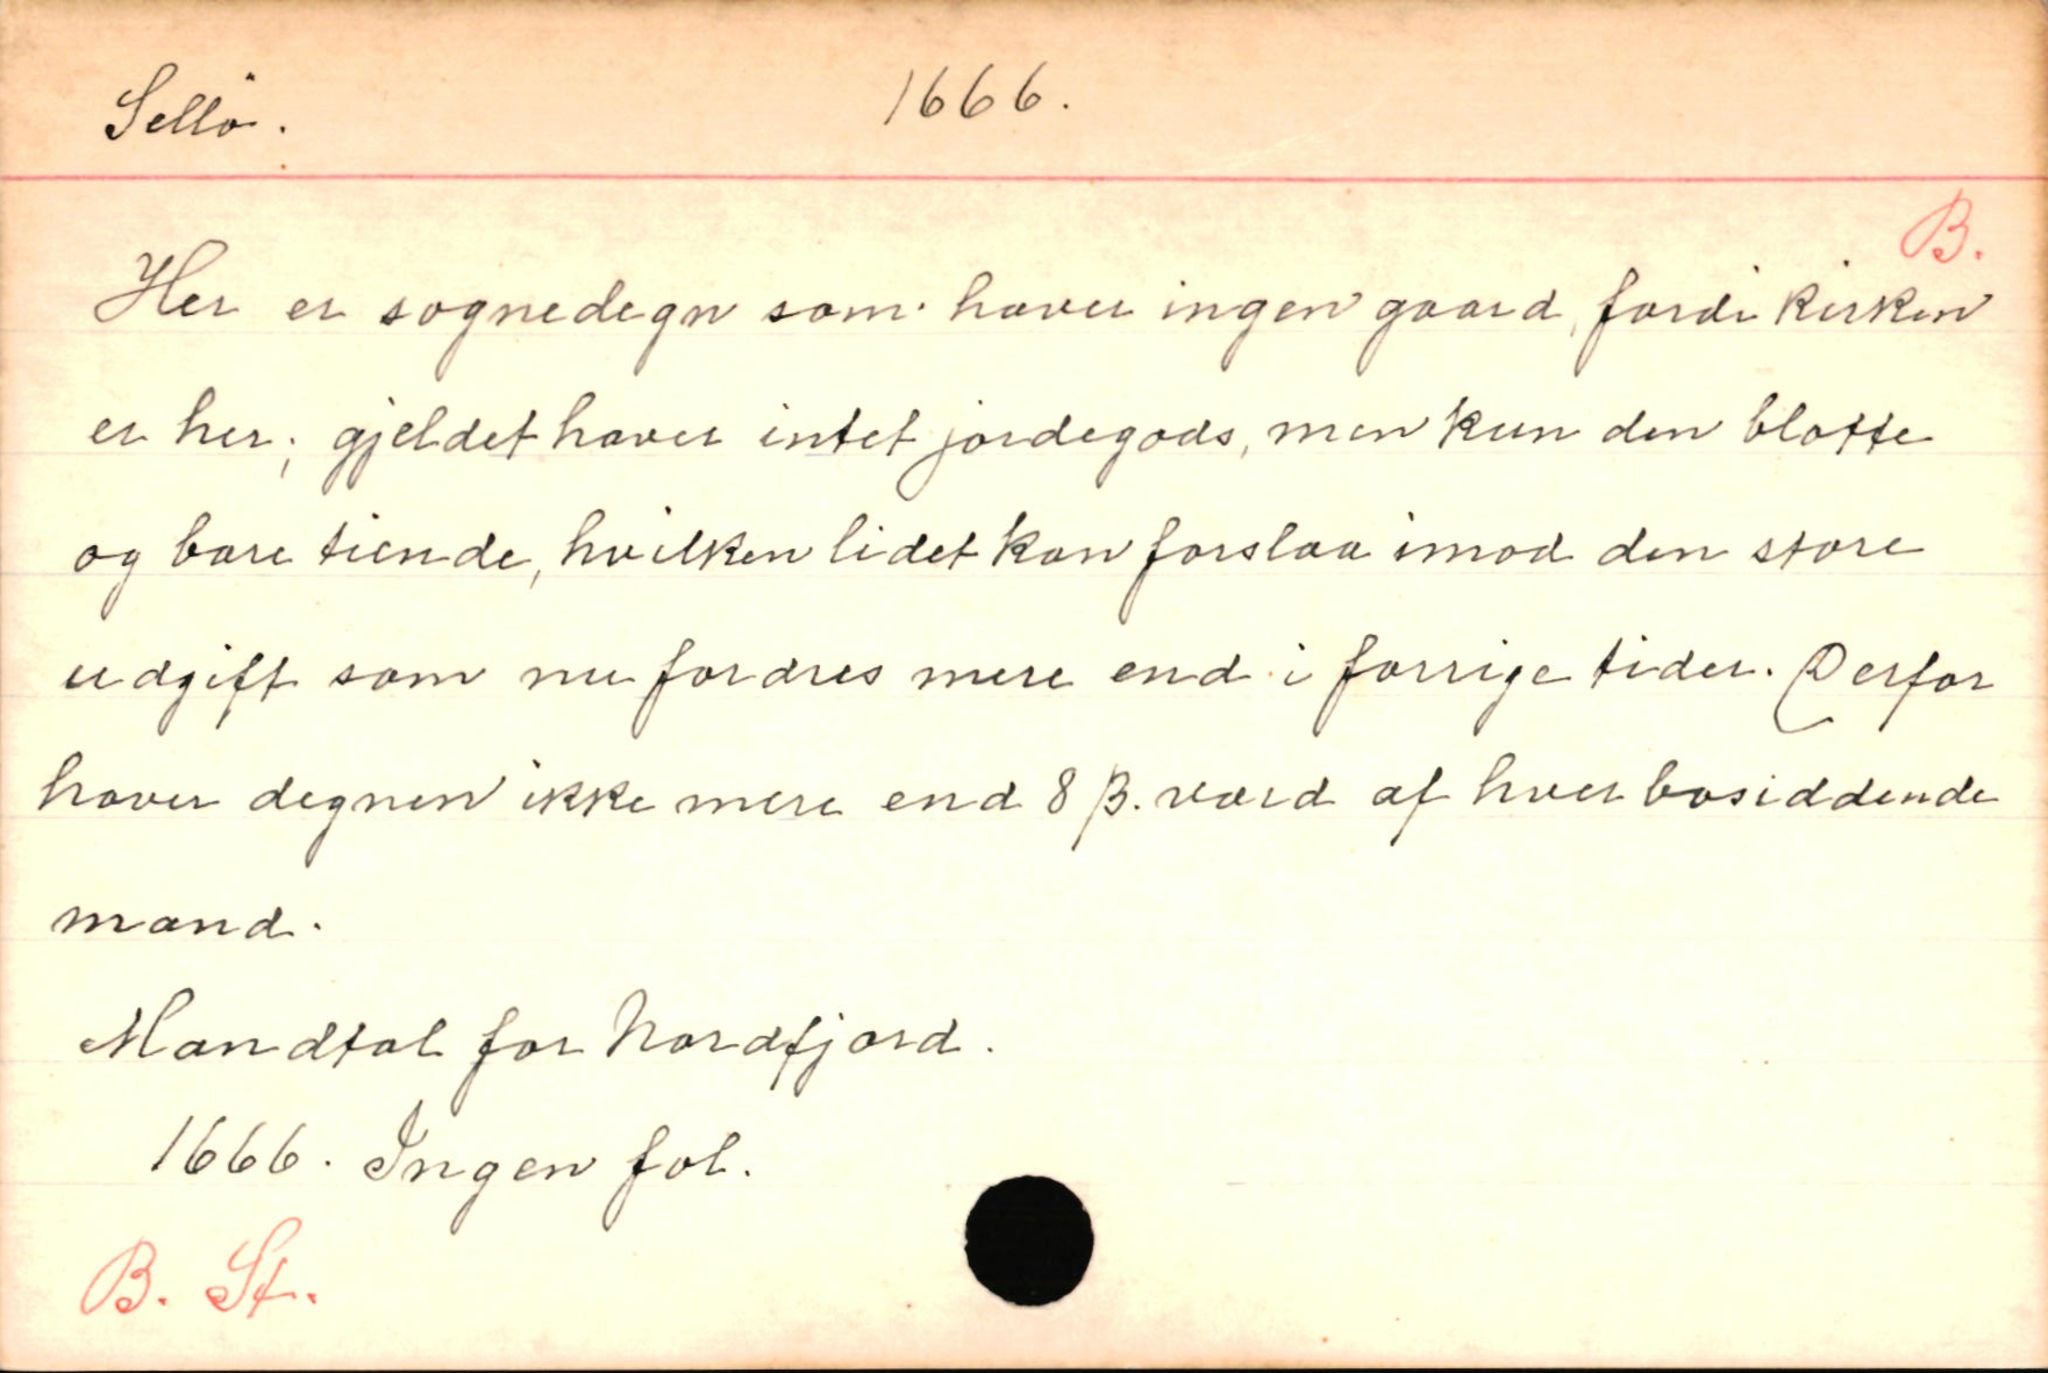 Sellö. 1666.
B.
Her er sognedegn som haver ingen gaard, fordi kirken
er her; gjeldet haver intet jordegods, men kun den blotte
og bare tiende, hvilken lidet kan forslaa imod den store
udgift som nu fordres mere end i forrige tider. Derfor
haver degnen ikke mere end 8 β. værd af hver bosiddende
mand.
Mandtal for Nordfjord.
1666. Ingen fol.
B. St.